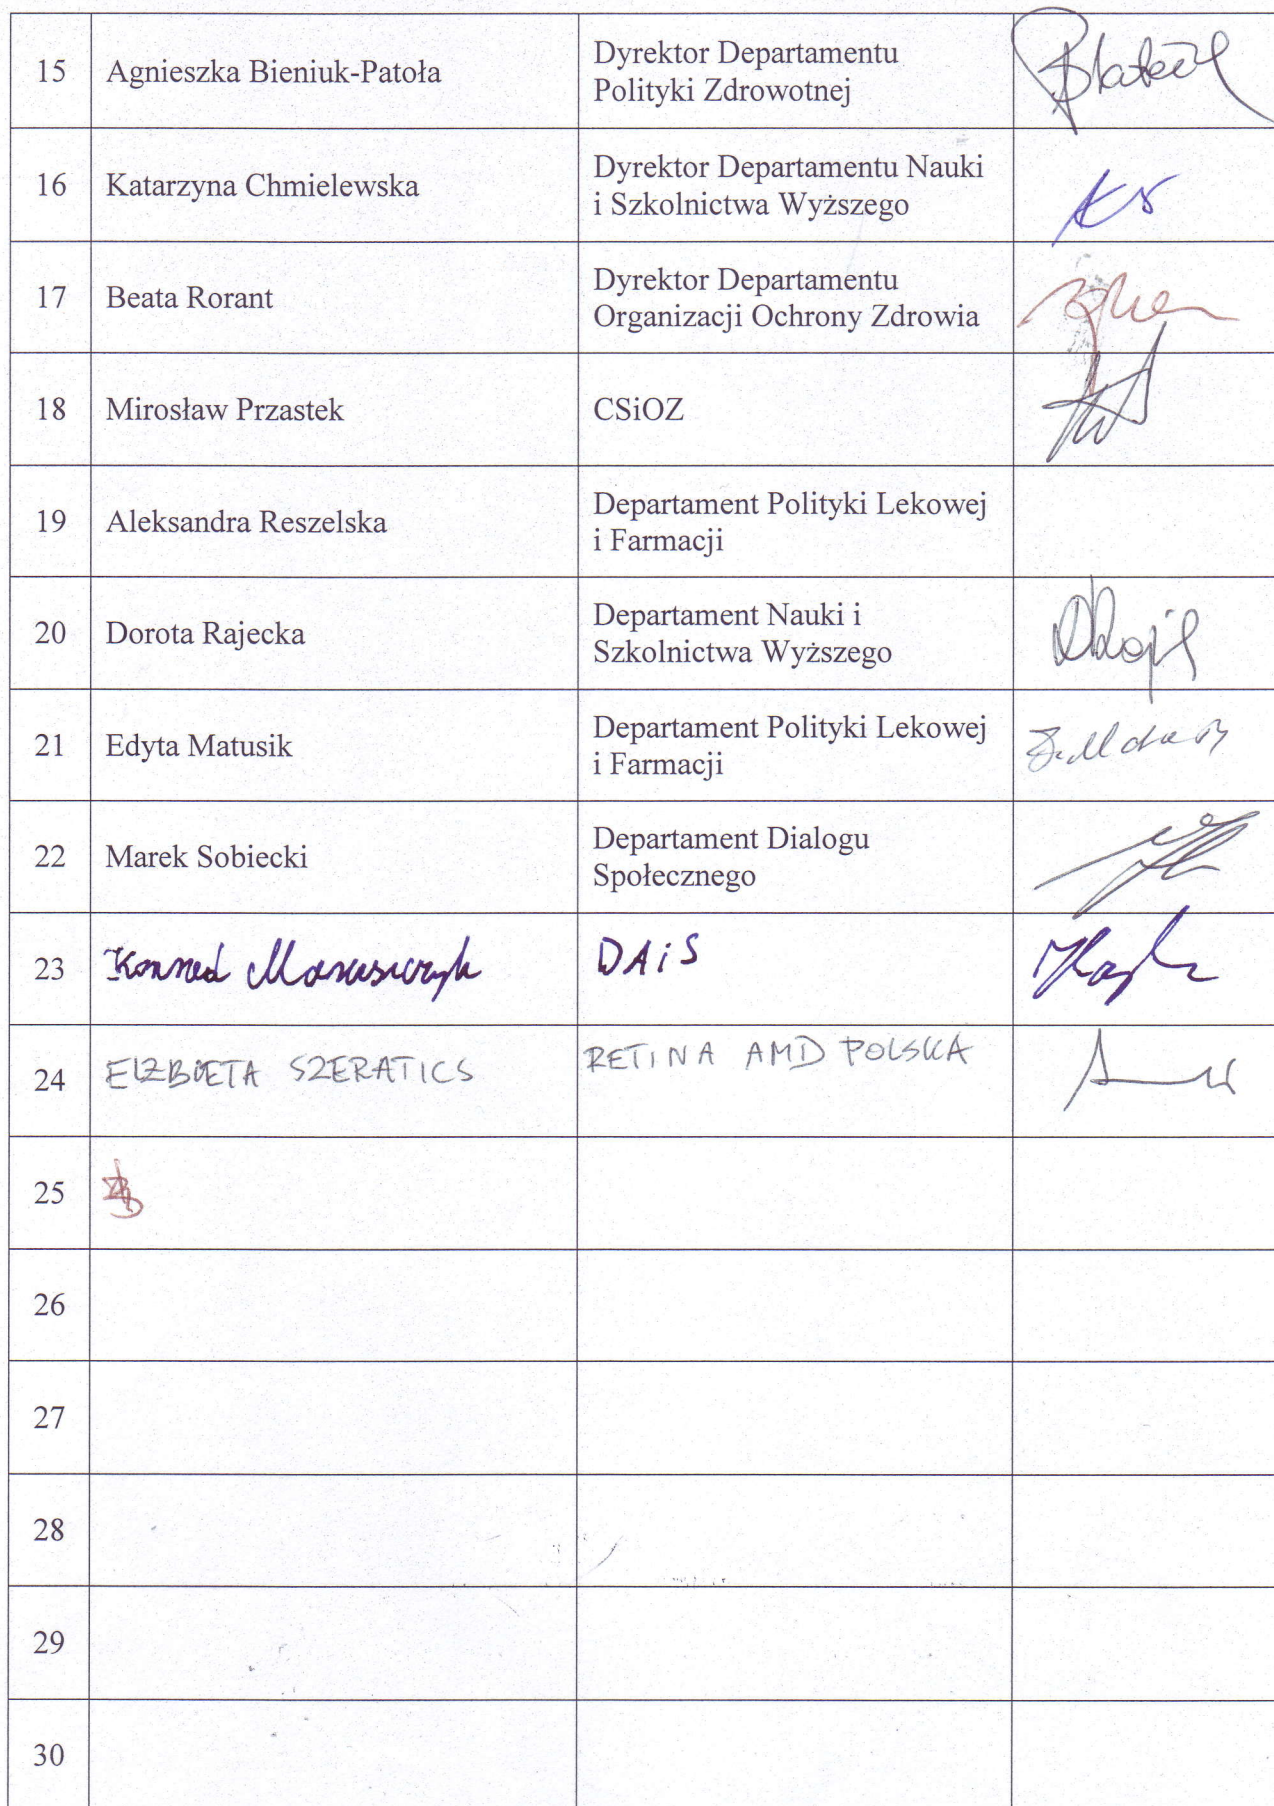 15 Agnieszka Bieniuk-Patoła Dyrektor Departamentu
Polityki Zdrowotnej
16 Katarzyna Chmielewska Dyrektor Departamentu Nauki
i Szkolnictwa Wyższego
17 Beata Rorant Dyrektor Departamentu
Organizacji Ochrony Zdrowia
18 Mirosław Przastek CSiOZ
19 Aleksandra Reszelska Departament Polityki Lekowej
i Farmacji
20 Dorota Rajecka Departament Nauki i
Szkolnictwa Wyższego
21 Edyta Matusik Departament Polityki Lekowej
i Farmacji
22 Marek Sobiecki Departament Dialogu
Społecznego
23 Konrad DAiS
24 ELŻBIETA SZERATICS RETINA AMD POLSKA
25
26
27
28
29
30